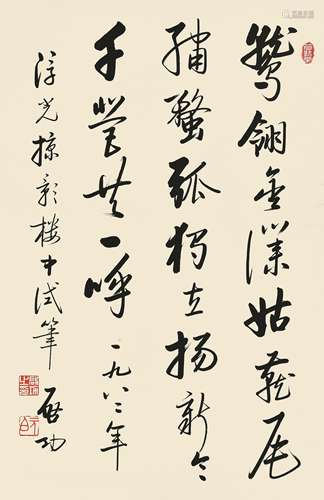 鹫翎金仆姑燕尾
绣蝥弧独立扬新令
千营共一呼 一九八二年
浮光掠影楼中试笔 启功